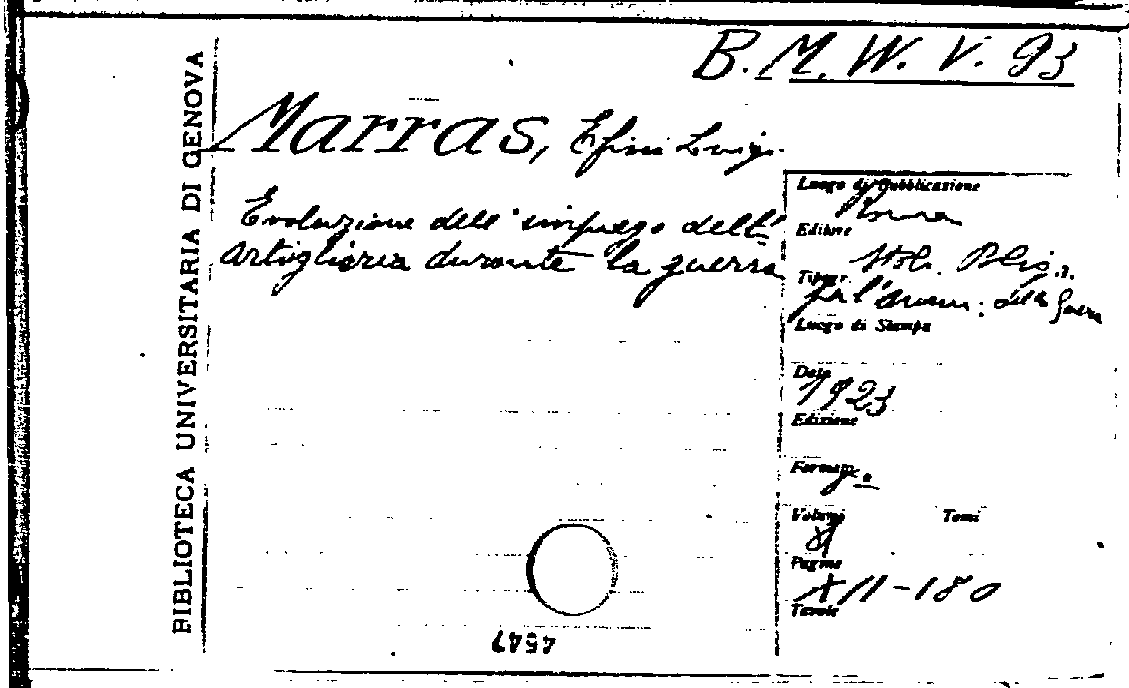 B.M. W. V. 93
BIBLIOTECA UNIVERSITARIA DI GENOVA
Marras, Efisi Luigi.
Evoluzione dell'impiego dell'
artiglieria durante la guerra
Luogo di Pubblicazione
Roma
Editore
Stab. Polig.
Tipogr.
per l'Amm. della Guerra
Luogo di Stampa
Data
1923
Edizione
Formato
Volumi Tomi
Pagine
XII-180
Tavole
4547